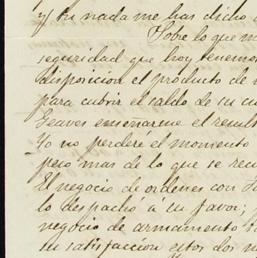 y tu nada me has dicho
Sobre lo que
seguridad que hoy tenemos
disposicion el producto de
para cubrir el saldo de su
enseñarme el
Yo no perderé el momento
peco mas de lo que se
El negocio de ordenes con
lo despachó á su favor;
negocio de armamento
su satisfaccion estos dos